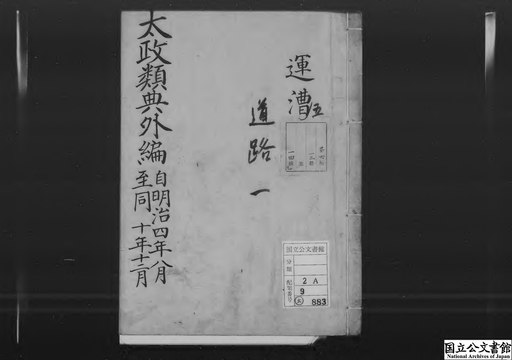 運漕五
道路一
太政類典外編
自明治四年八月
至同十年十二月
国立公文書館
分類
配架番号
2A
9
883
国立公文書館
National Archives of Japan